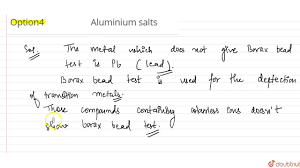 Option4 Aluminium salts
Sol. The metal which does not give Borax bead
test is Pb (lead).
Borax bead test is used for the detection
of transition metals.
Those compounds containing colorless ions doesn't
show borax bead test.
doubtnut